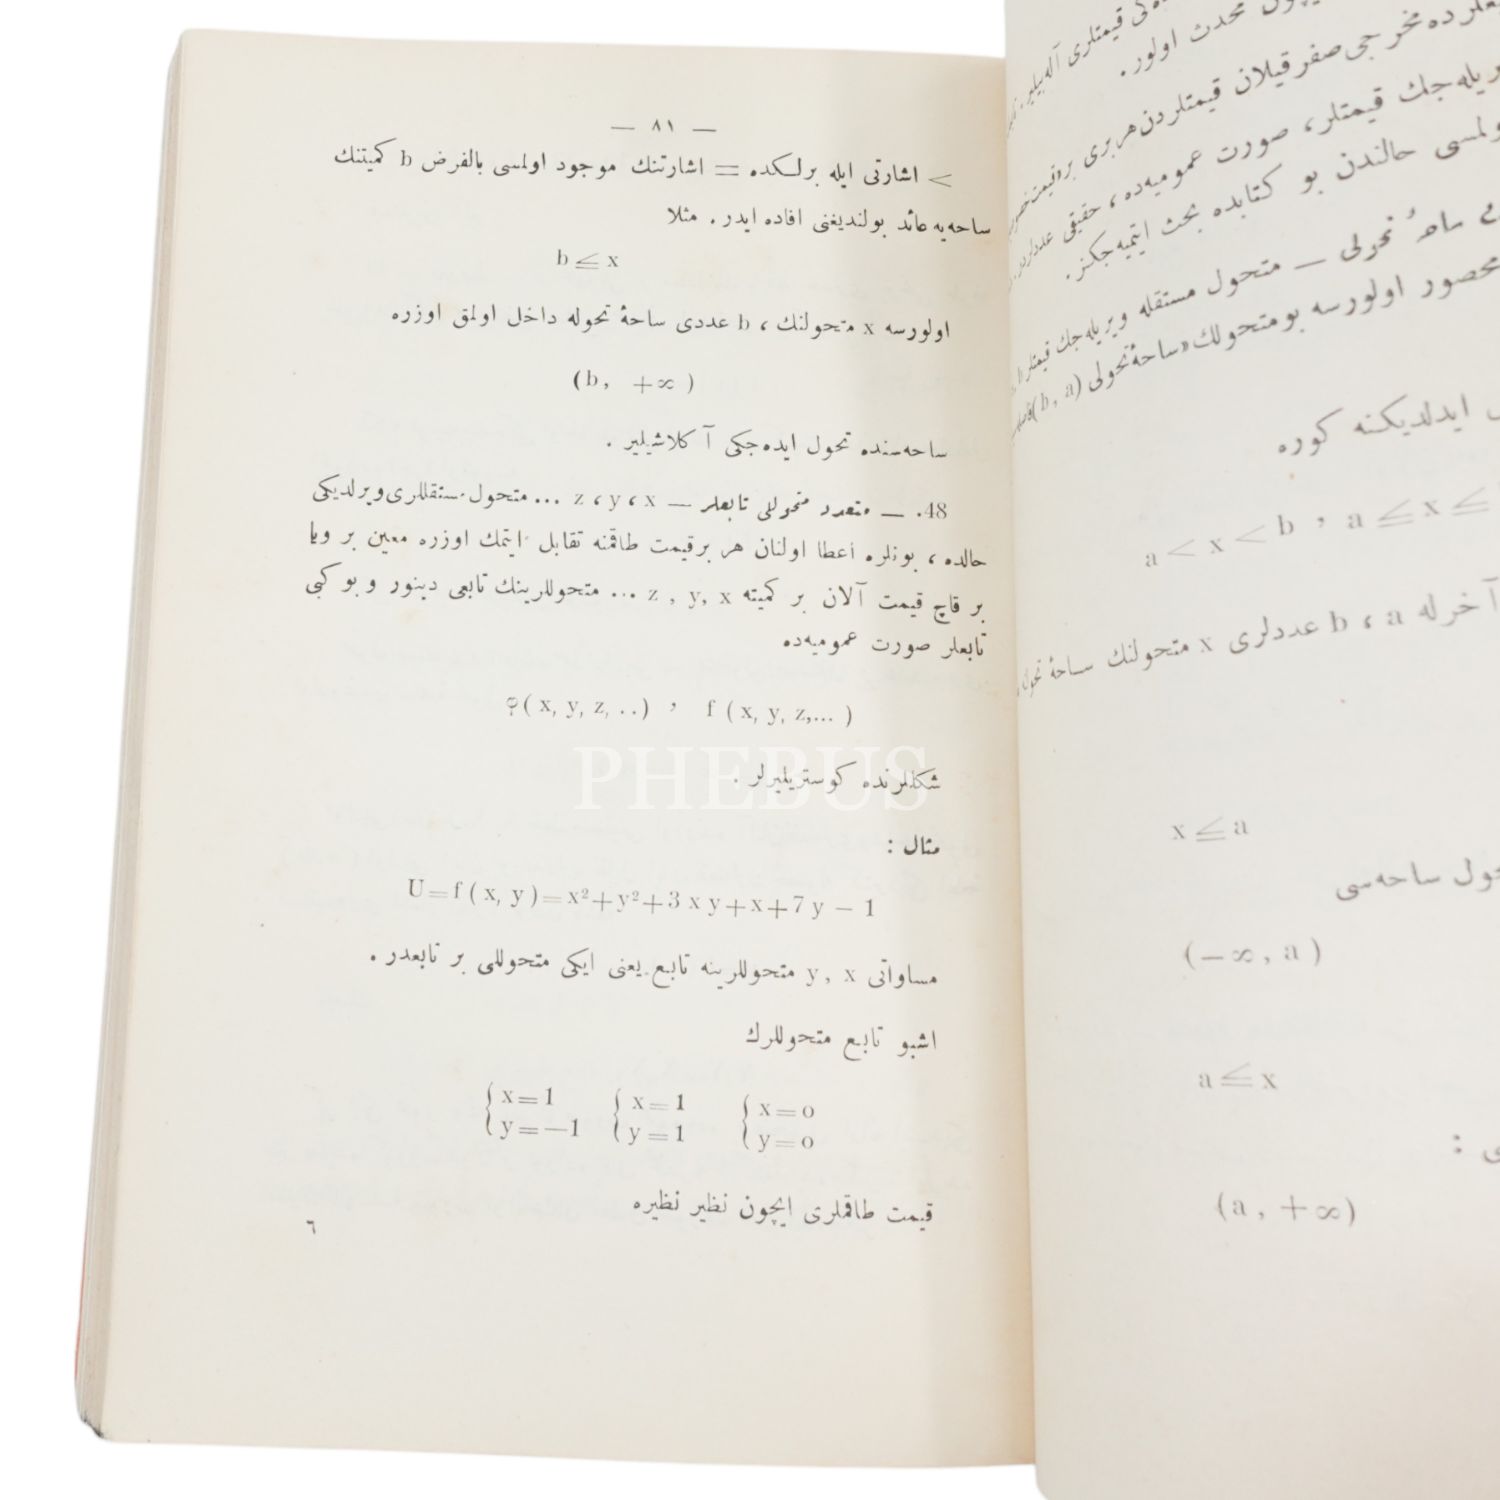 — ٨١ —
> اشارتی ایله برلسكده = اشارتنك موجود اولمسی بالفرض b كمیتنك
ساحه‌یه عائد بولندیغنی افاده ایدر . مثلا
b ≦ x
اولورسه x متحولنك ، b عددی ساحۀ تحوله داخل اولمق اوزره
(b, +∞)
ساحه‌سنده تحول ایده‌جكی آكلاشیلیر .
48. — متعدد متحوللی تابعلر — z ، y ، x ... متحول مستقللری ویرلدیكی
حالده ، بونلره اعطا اولنان هر برقیمت طاقمنه تقابل ایتمك اوزره معین بر ویا
بر قاچ قیمت آلان بر كمیته z , y, x ... متحوللرینك تابعی دینور و بو كبی
تابعلر صورت عمومیه‌ده
φ( x, y, z, ..) , f ( x, y, z,... )
شكللرنده كوستریلیرلر .
PHEBUS
مثال :
U=f ( x, y )=x²+y²+3 x y+x+7 y − 1
مساواتی y , x متحوللرینه تابع یعنی ایكی متحوللی بر تابعدر .
اشبو تابع متحوللرك
{ x=1 { x=1 { x=o
{ y=−1 { y=1 { y=o
قیمت طاقملری ایچون نظیر نظیره
٦
قیمتلری آله‌بیلیر
محدث اولور .
ده مخرجی صفر قیلان قیمتلردن هر بری بر قیمت
یله‌جك قیمتلر ، صورت عمومیه‌ده ، حقیقی عددلردر
ولمسی حالندن بو كتابده بحث ایتمیه‌جكز .
تحولی — متحول مستقله ویریله‌جك قیمتلر
محصور اولورسه بو متحولك «ساحۀ تحولی (b , a)
ایدلدیكنه كوره
a < x < b , a ≦ x ≦
آخرله b ، a عددلری x متحولنك ساحۀ
x ≦ a
ساحه‌سی
(−∞, a )
a ≦ x
:
(a , +∞)